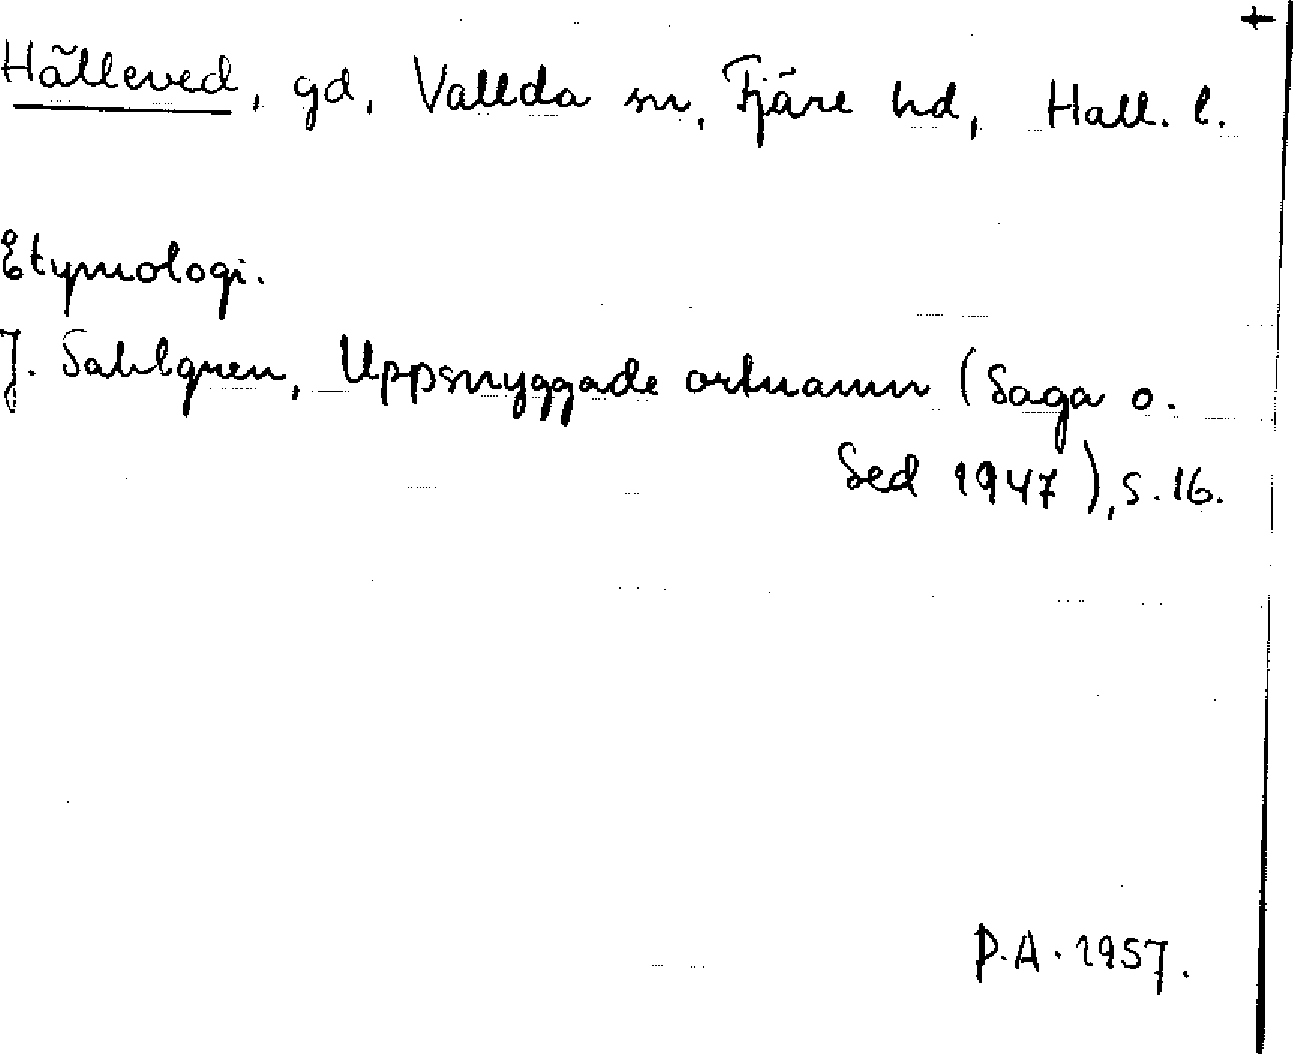 +
Hälleved, gd, Vallda sn, Fjäre hd, Hall. l.
Etymologi.
J. Sahlgren, Uppsnyggade ortnamn (Saga o.
Sed 1947), s. 16.
P.A. 1957.